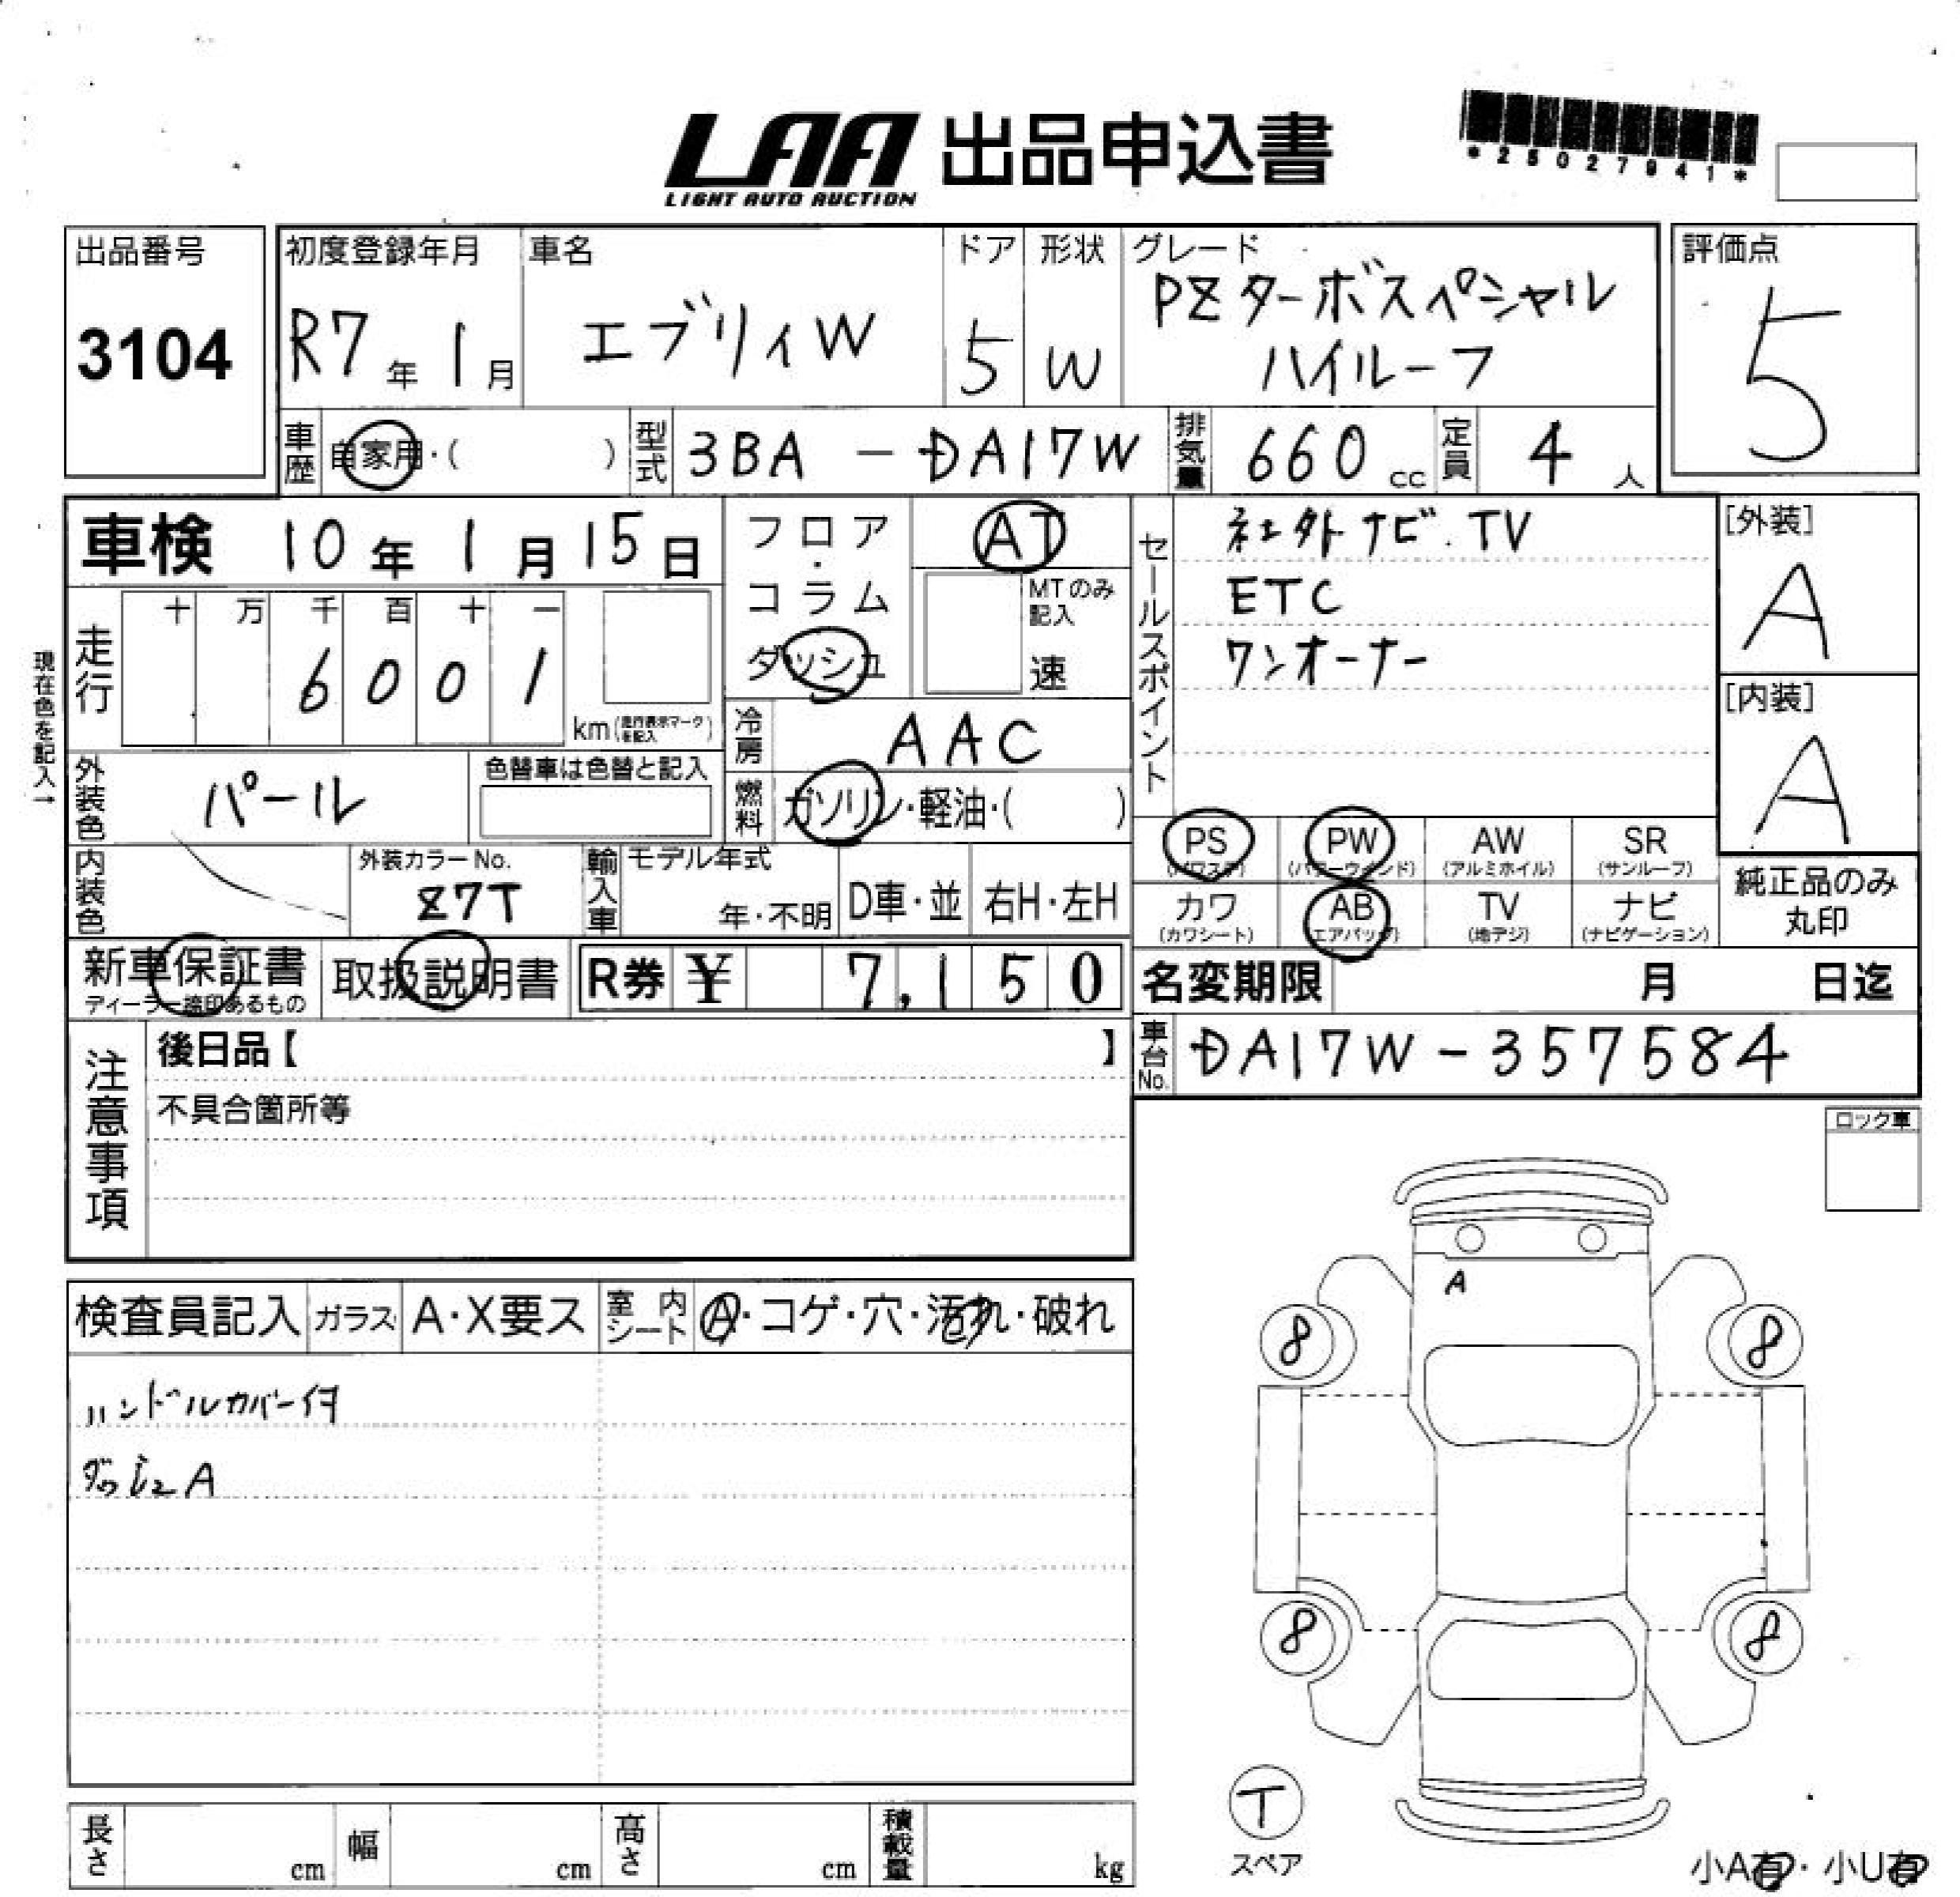 LAA 出品申込書
LIGHT AUTO AUCTION
*25027941*
出品番号
3104
初度登録年月
R7年 1月
車名
エブリィW
ドア
5
形状
W
グレード
PZターボスペシャル
ハイルーフ
評価点
5
車歴 自家用・( )
型式 3BA - DA17W
排気量 660 cc
定員 4 人
車検 10年 1月 15日
フロア・コラム
ダッシュ
AT
MTのみ
記入
速
セールスポイント
社外ナビ.TV
ETC
ワンオーナー
[外装]
A
[内装]
A
現在色を記入→
走行
十 万 千 百 十 一
6 0 0 1
km(走行表示マークを記入)
冷房 AAC
燃料 ガソリン・軽油・( )
外装色 パール
色替車は色替と記入
内装色
外装カラーNo.
Z7T
輸入車
モデル年式
年・不明
D車・並
右H・左H
PS
(パワステ)
PW
(パワーウインド)
AW
(アルミホイル)
SR
(サンルーフ)
カワ
(カワシート)
AB
(エアバッグ)
TV
(地デジ)
ナビ
(ナビゲーション)
純正品のみ
丸印
新車保証書
ディーラー捺印あるもの
取扱説明書
R券 ¥ 7,150
名変期限 月 日迄
車台No. DA17W-357584
注意事項
後日品【 】
不具合箇所等
ロック車
検査員記入
ガラス
A・X要ス
室内シート
A・コゲ・穴・汚れ・破れ
ハンドルカバー付
ダッシュA
A
8
8
8
8
T
スペア
長さ cm
幅 cm
高さ cm
積載量 kg
小A有・小U有